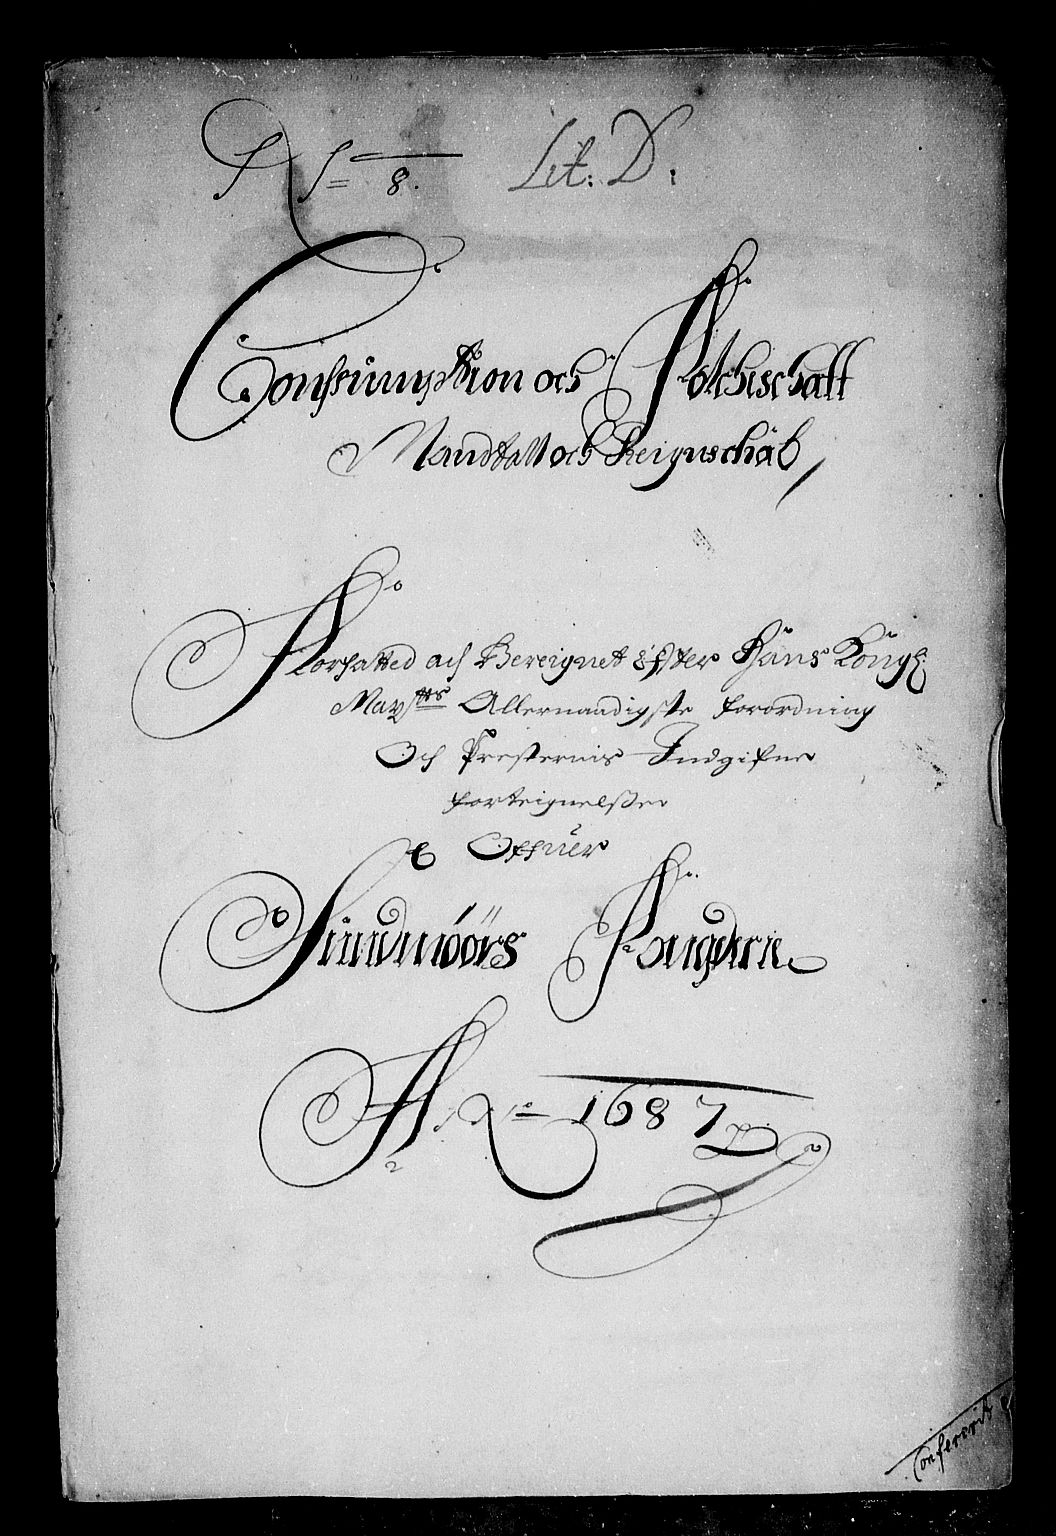 8. Lit: D:
Consumption och Folcheschatt
Mandtall och Reignschab
Forfatted och Bereignet Efter Hans Kongl:
Mayttrs Allernaadigste forordning
Och Presternis Indgifne
forteignelsser
Offuer
Sundmøørs Fougderie
Ao 1687
Confererit